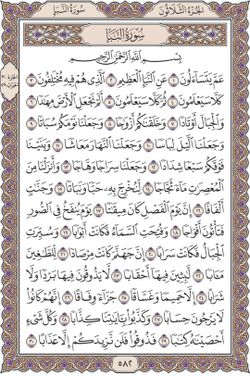 الجُزْءُ الثَّلَاثُونَ
سُورَةُ النَّبَإِ
سُورَةُ النَّبَإِ
بِسْمِ ٱللَّهِ ٱلرَّحْمَٰنِ ٱلرَّحِيمِ
عَمَّ يَتَسَآءَلُونَ ١ عَنِ ٱلنَّبَإِ ٱلْعَظِيمِ ٢ ٱلَّذِى هُمْ فِيهِ مُخْتَلِفُونَ ٣
كَلَّا سَيَعْلَمُونَ ٤ ثُمَّ كَلَّا سَيَعْلَمُونَ ٥ أَلَمْ نَجْعَلِ ٱلْأَرْضَ مِهَٰدًا ٦
وَٱلْجِبَالَ أَوْتَادًا ٧ وَخَلَقْنَٰكُمْ أَزْوَٰجًا ٨ وَجَعَلْنَا نَوْمَكُمْ سُبَاتًا ٩
وَجَعَلْنَا ٱلَّيْلَ لِبَاسًا ١٠ وَجَعَلْنَا ٱلنَّهَارَ مَعَاشًا ١١ وَبَنَيْنَا
فَوْقَكُمْ سَبْعًا شِدَادًا ١٢ وَجَعَلْنَا سِرَاجًا وَهَّاجًا ١٣ وَأَنزَلْنَا مِنَ
ٱلْمُعْصِرَٰتِ مَآءً ثَجَّاجًا ١٤ لِّنُخْرِجَ بِهِۦ حَبًّا وَنَبَاتًا ١٥ وَجَنَّٰتٍ
أَلْفَافًا ١٦ إِنَّ يَوْمَ ٱلْفَصْلِ كَانَ مِيقَٰتًا ١٧ يَوْمَ يُنفَخُ فِى ٱلصُّورِ
فَتَأْتُونَ أَفْوَاجًا ١٨ وَفُتِحَتِ ٱلسَّمَآءُ فَكَانَتْ أَبْوَٰبًا ١٩ وَسُيِّرَتِ
ٱلْجِبَالُ فَكَانَتْ سَرَابًا ٢٠ إِنَّ جَهَنَّمَ كَانَتْ مِرْصَادًا ٢١ لِّلطَّٰغِينَ
مَـَٔابًا ٢٢ لَّٰبِثِينَ فِيهَآ أَحْقَابًا ٢٣ لَّا يَذُوقُونَ فِيهَا بَرْدًا وَلَا
شَرَابًا ٢٤ إِلَّا حَمِيمًا وَغَسَّاقًا ٢٥ جَزَآءً وِفَاقًا ٢٦ إِنَّهُمْ كَانُوا۟
لَا يَرْجُونَ حِسَابًا ٢٧ وَكَذَّبُوا۟ بِـَٔايَٰتِنَا كِذَّابًا ٢٨ وَكُلَّ شَىْءٍ
أَحْصَيْنَٰهُ كِتَٰبًا ٢٩ فَذُوقُوا۟ فَلَن نَّزِيدَكُمْ إِلَّا عَذَابًا ٣٠
٥٨٢